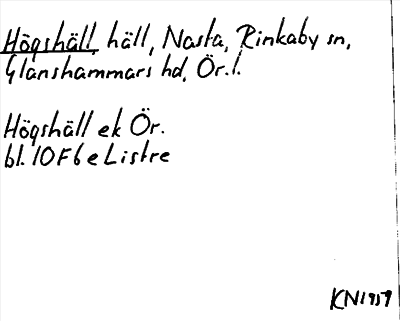 Högshäll, häll, Nasta, Rinkaby sn,
Glanshammars hd, Ör. l.
Högshäll ek Ör.
bl. 10F6e Listre
KN1959